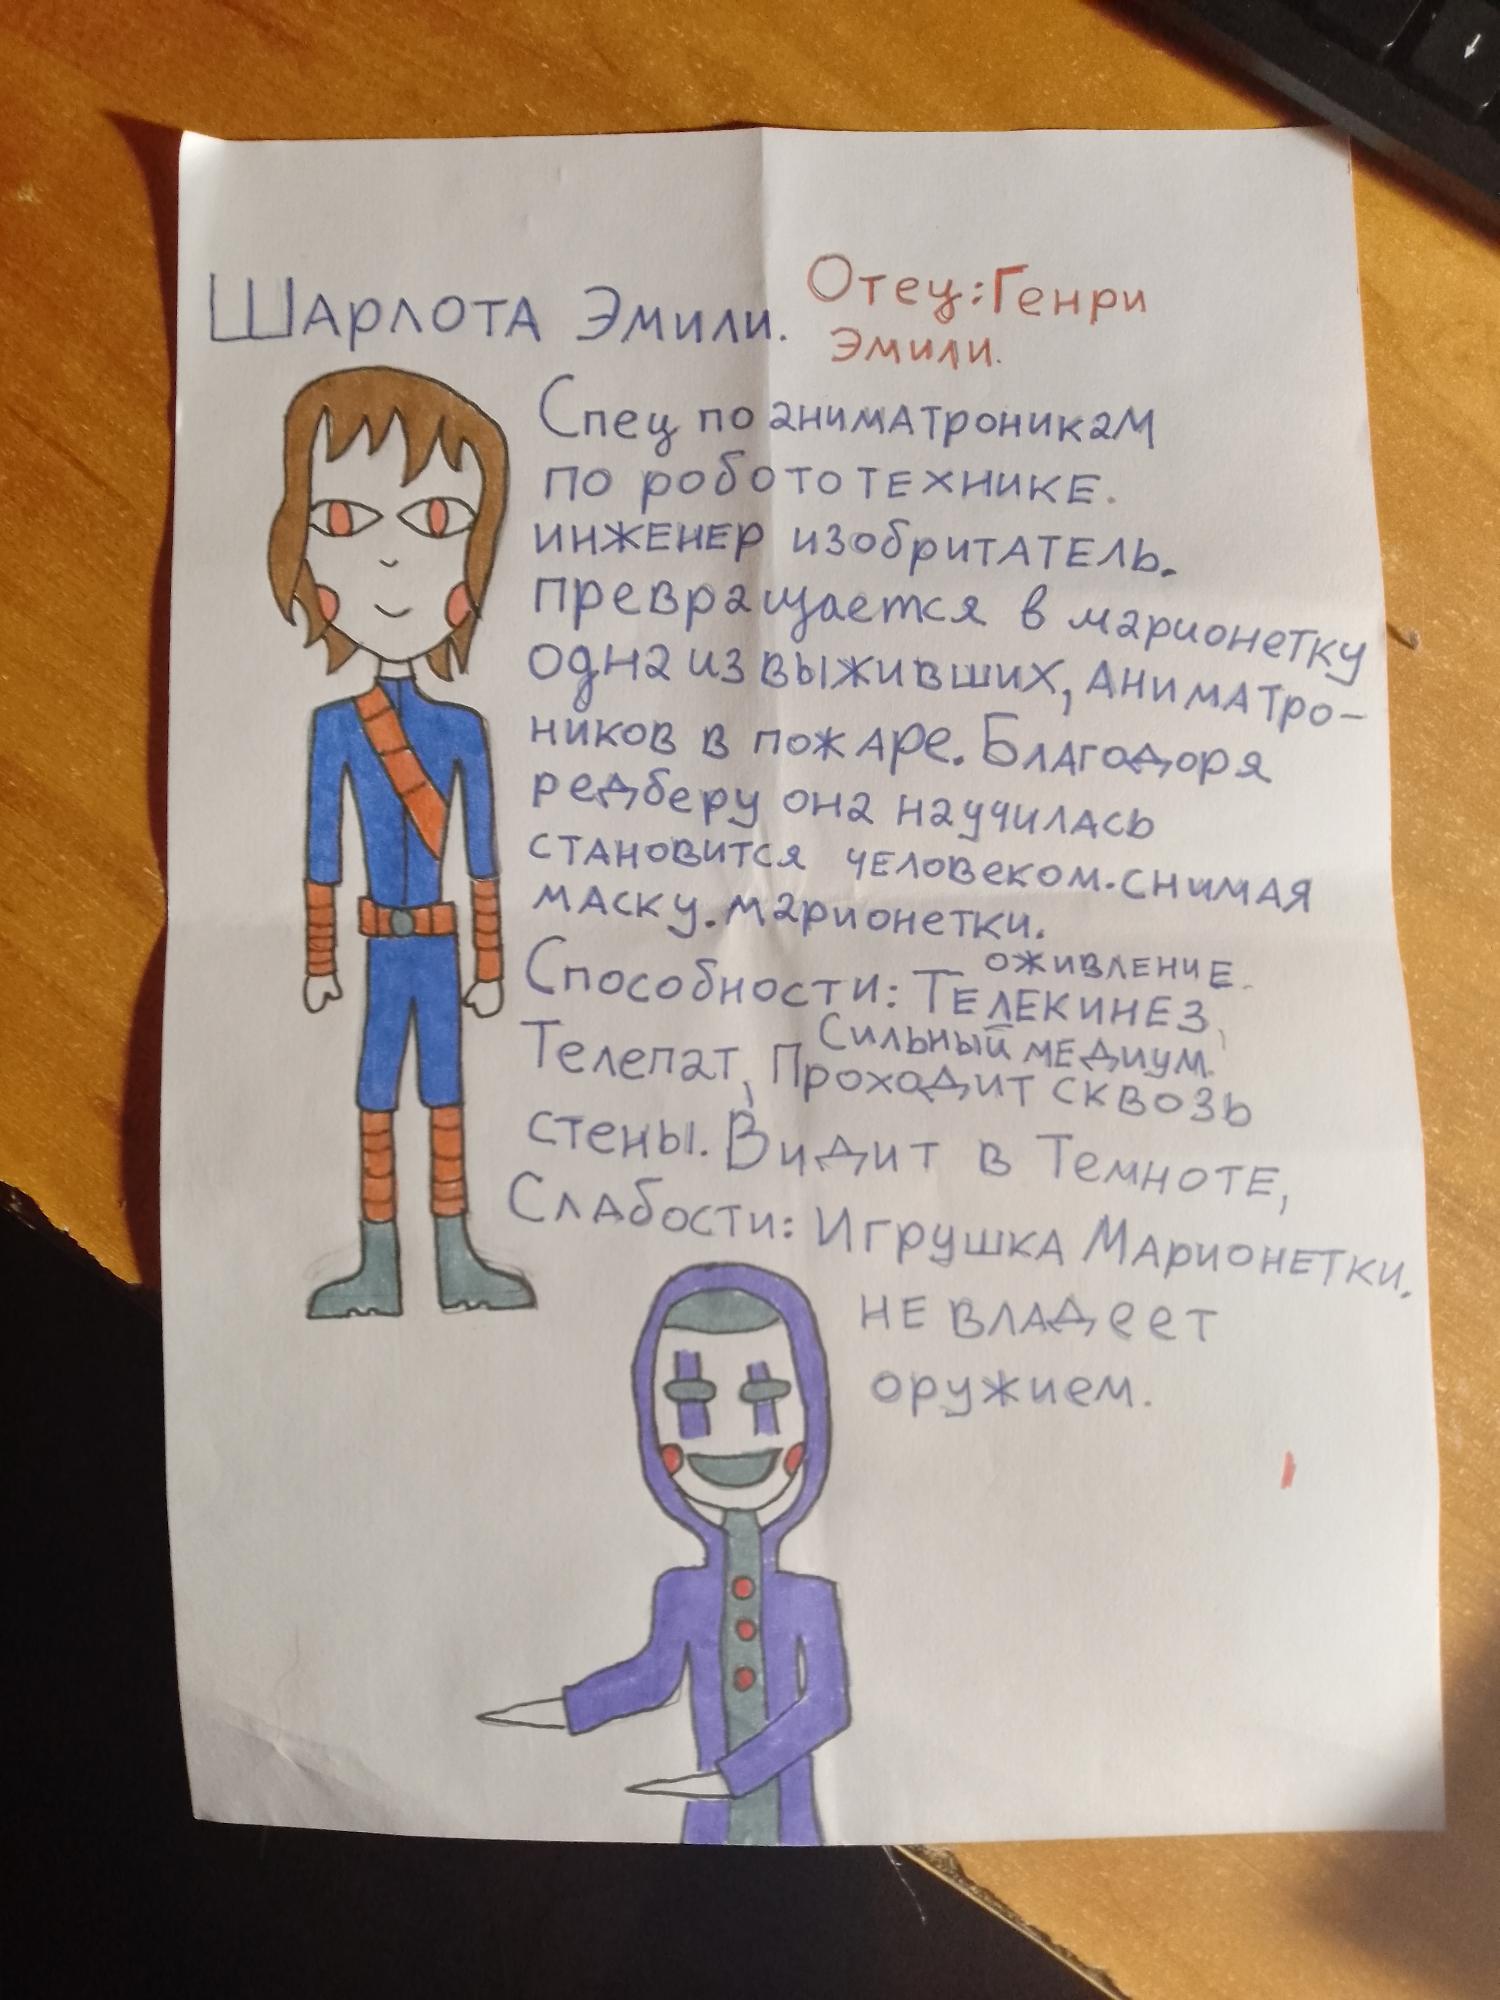 Шарлота Эмили.
Отец: Генри
Эмили.
Спец по аниматроникам
по робототехнике.
инженер изобритатель.
превращается в марионетку
одна из выживших, аниматро-
ников в пожаре. Благодоря
редберу она научилась
становится человеком. снимая
маску. марионетки.
Способности: Телекинез,
оживление.
Телепат, Проходит сквозь
Сильный медиум.
стены. Видит в Темноте,
Слабости: Игрушка Марионетки.
не владеет
оружием.